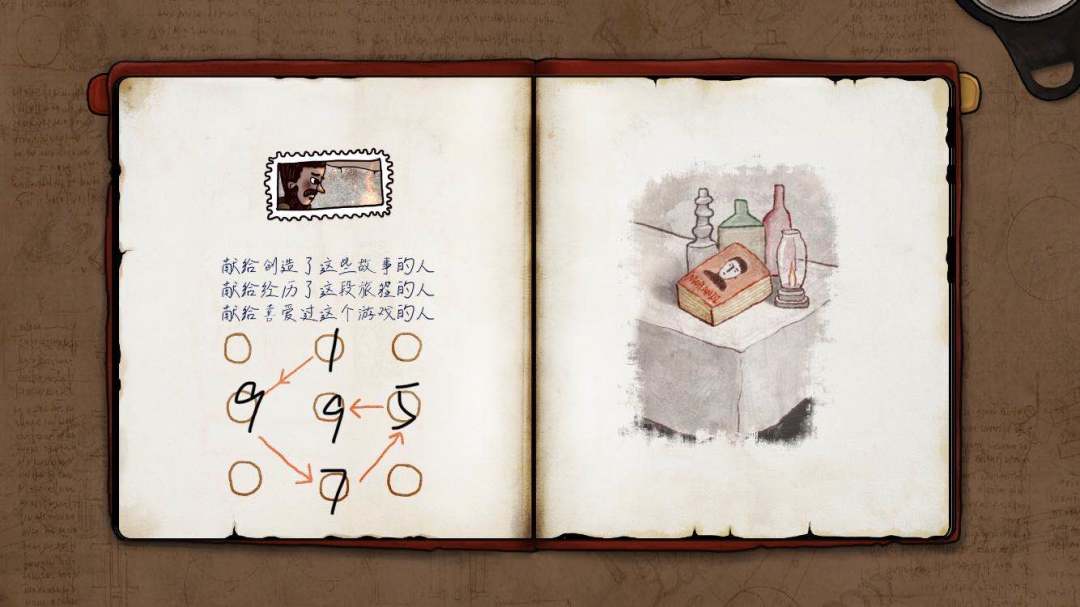 献给创造了这些故事的人
献给经历了这段旅程的人
献给喜爱过这个游戏的人
1
9 9 5
7
MORANDI